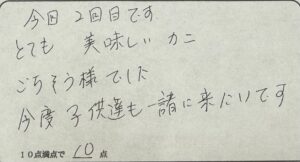 今回 2回目です
とても 美味しい カニ
ごちそう様でした
今度 子供達も一諸に来たいです
10点満点で 10 点